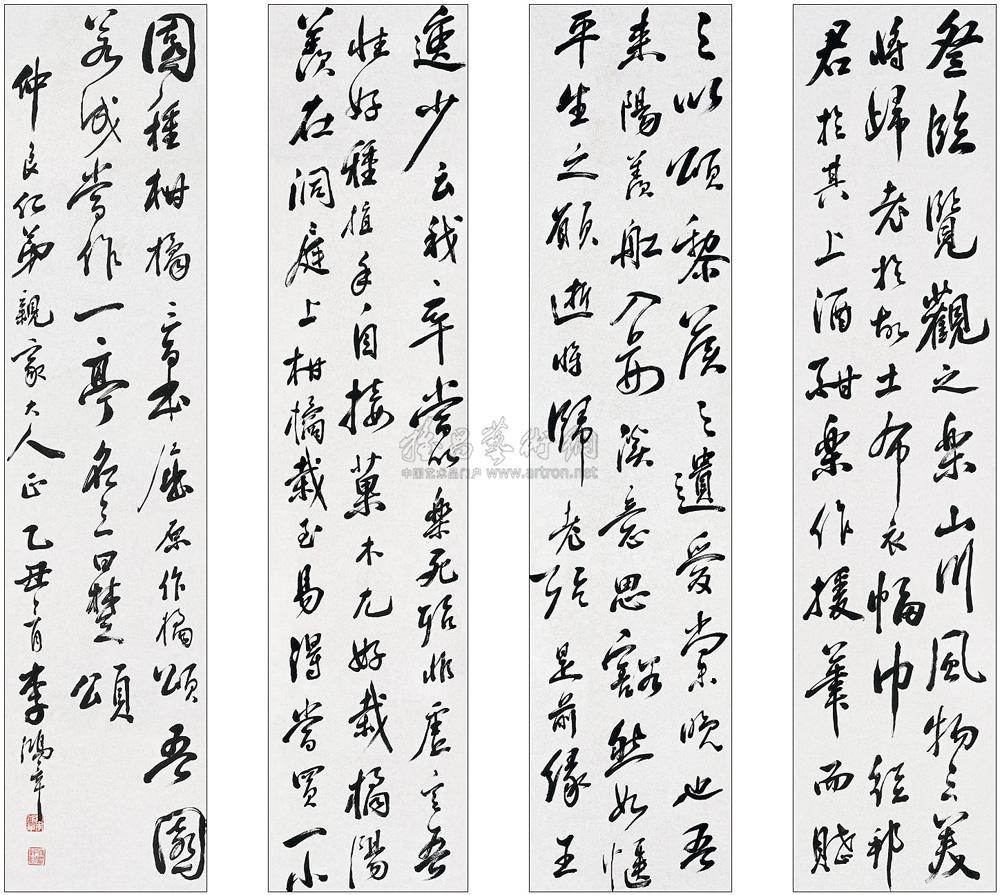 登临览观之乐山川风物之美
将归老於故土布衣幅巾径邪
君於其上酒酣乐作援笔而赋
之以颂黎侯之遗爱尚未晚也吾
来阳羡舡入荆溪意思豁然如惬
平生之愿逝将归老殆是前缘王
逸少云我卒当以乐死殆非虚言吾
性好种植手自接菓木尤好栽橘阳
羡在洞庭上柑橘栽至易得当买一小
園种柑橘三百本屈原作橘頌吾園
若成当作一亭名之曰楚頌
仲良仁弟親家大人正 乙丑二月 李鴻章
中国艺术品门户 www.artron.net